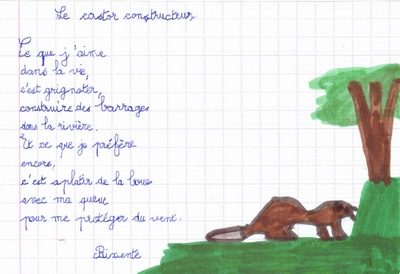 Le castor constructeur
Ce que j'aime
dans la vie,
c'est grignoter,
construire des barrages
dans la rivière.
Et ce que je préfère
encore,
c'est aplatir de la boue
avec ma queue
pour me protéger du vent.
Bixente